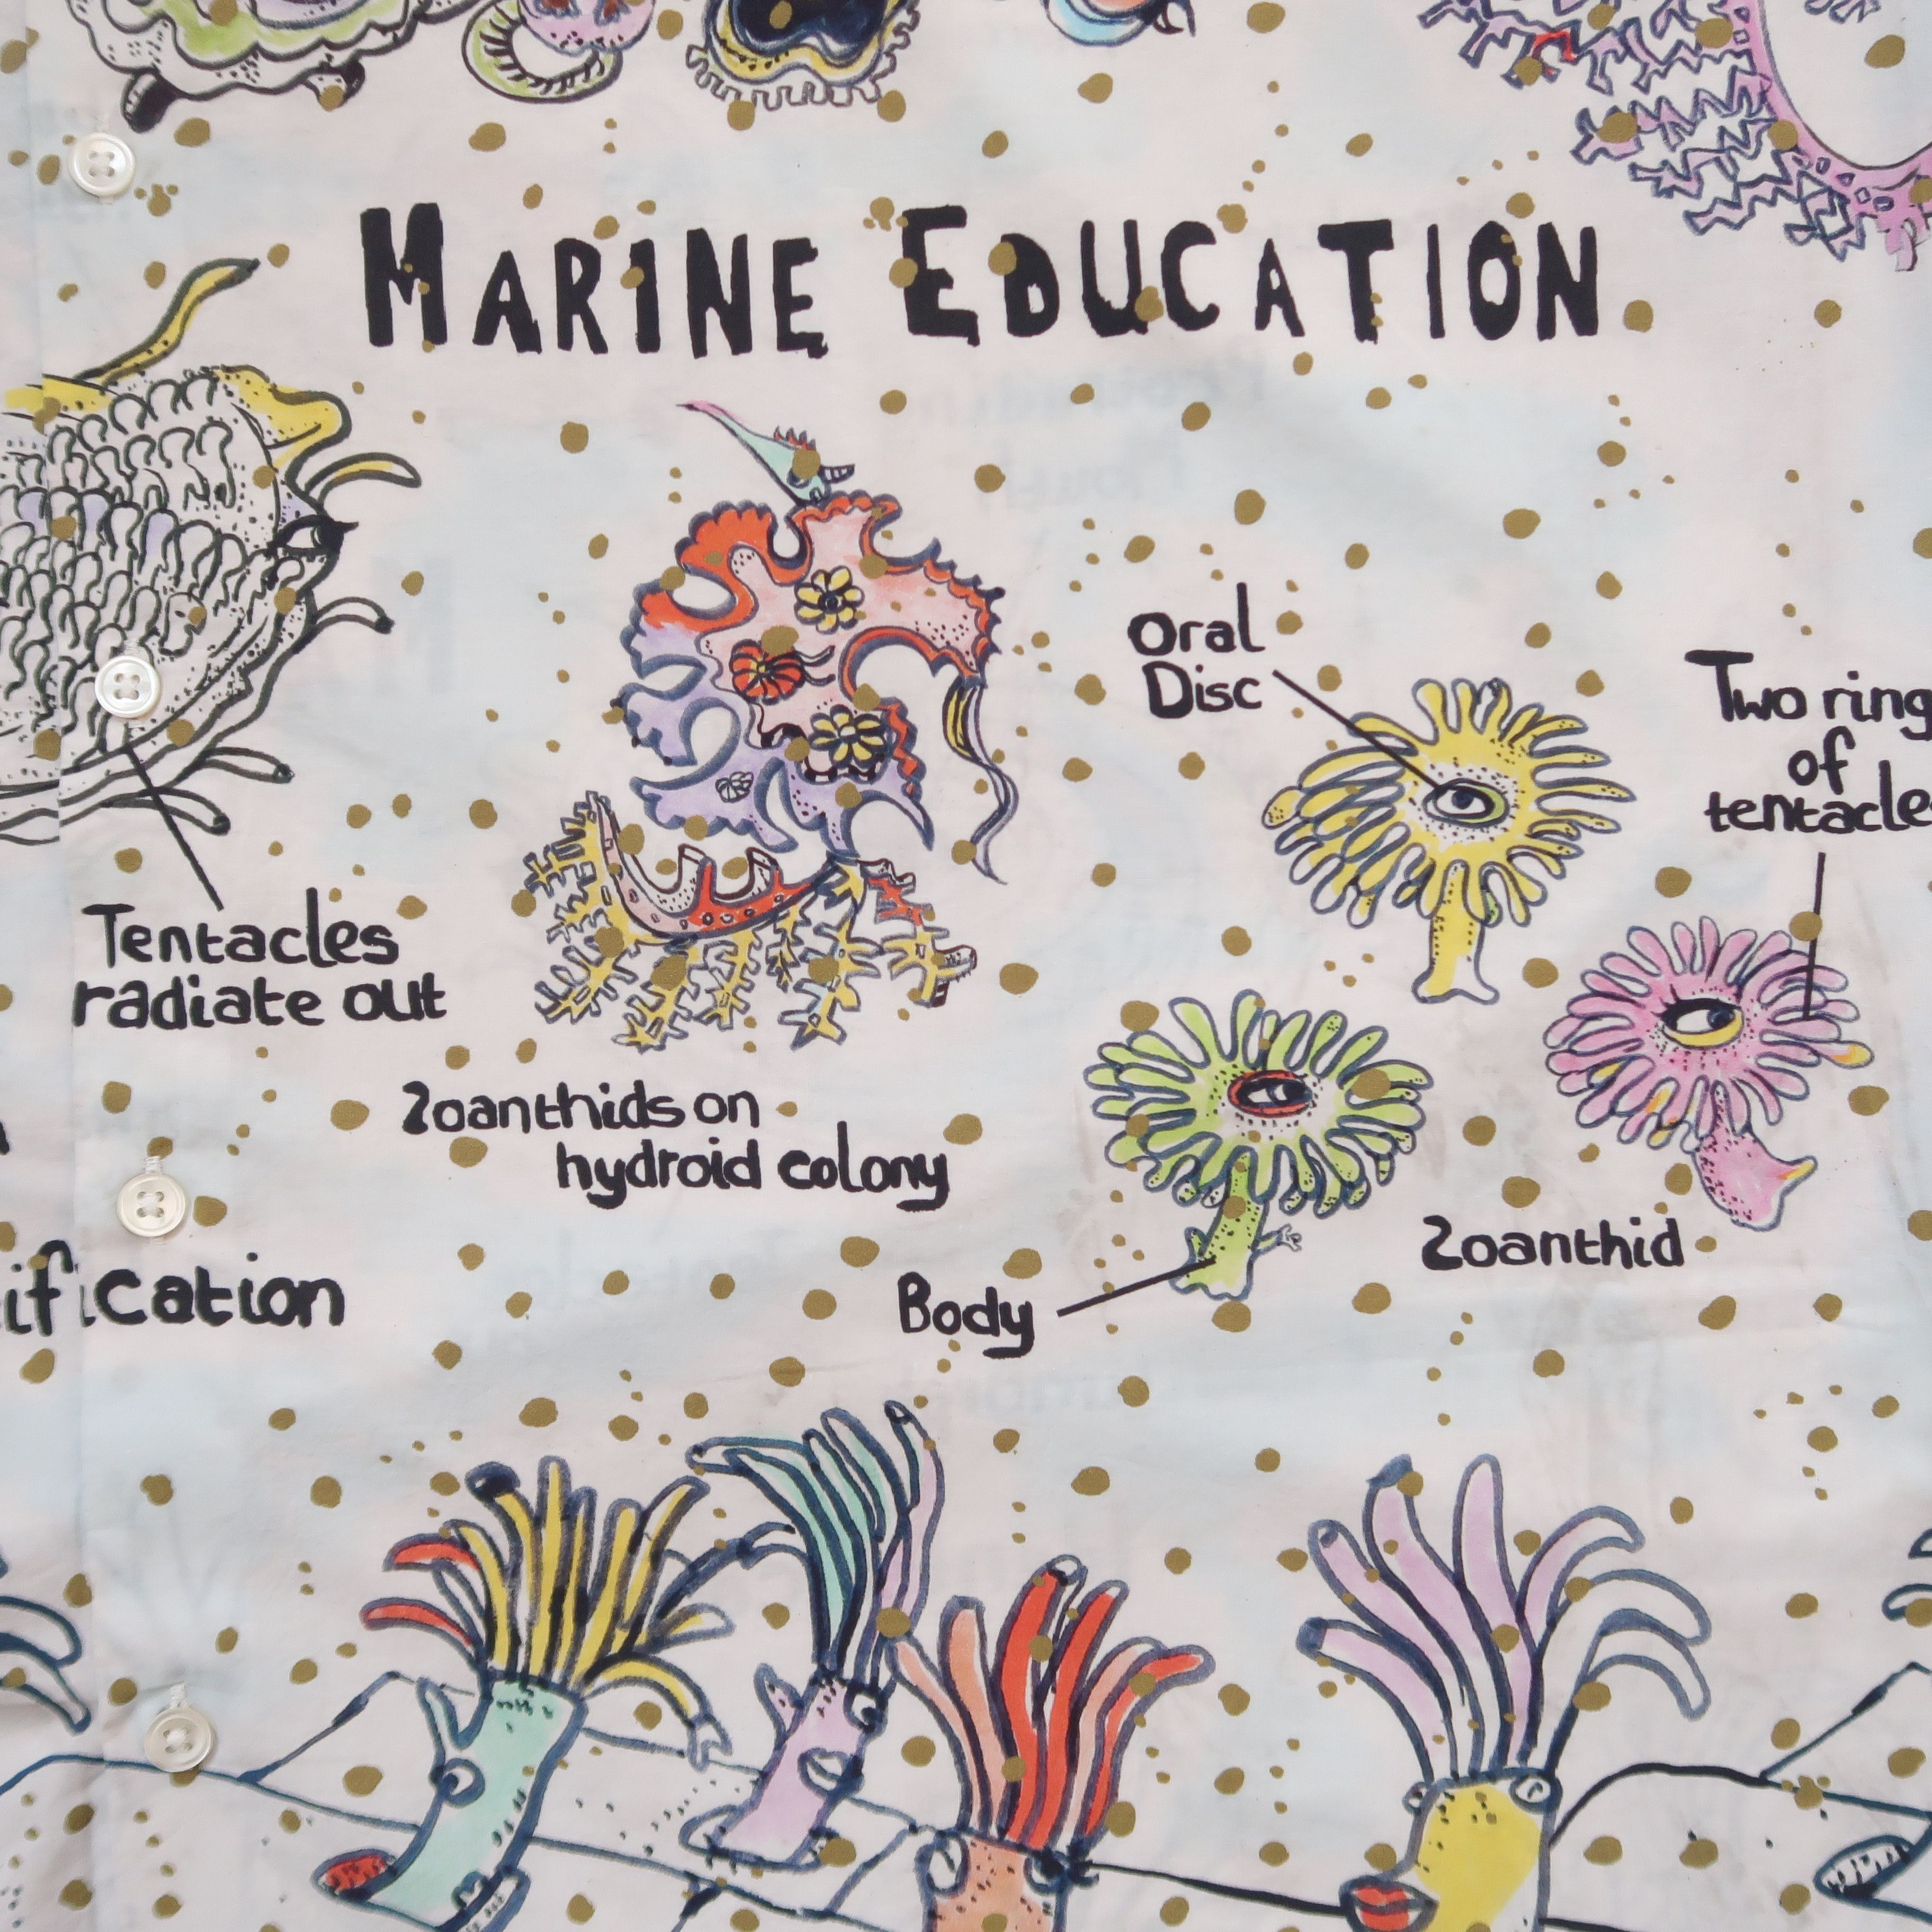 MARINE EDUCATION
Oral
Disc
Two ring
of
tentacle
Tentacles
radiate out
Zoanthids on
hydroid colony
Zoanthid
ification
Body